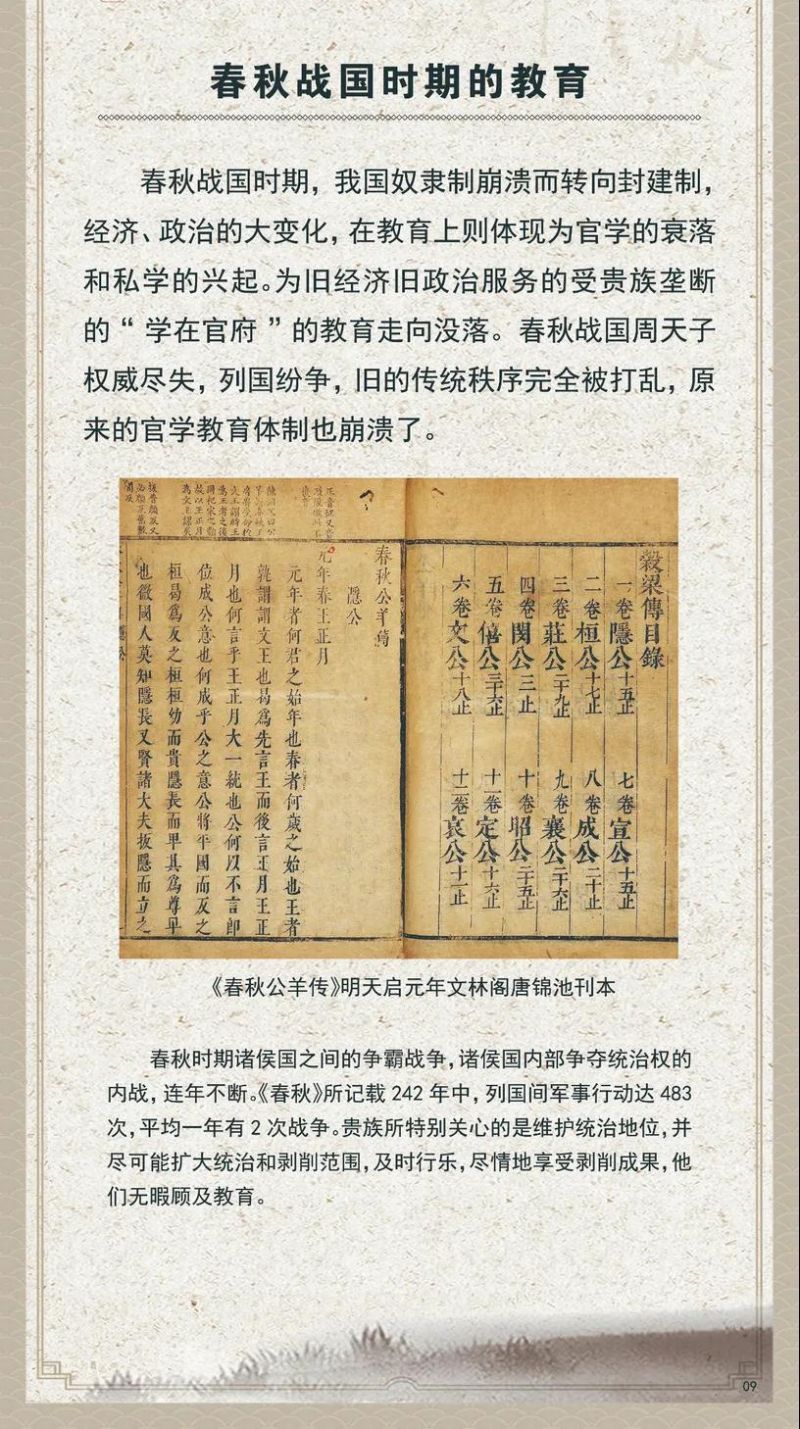 春秋战国时期的教育
春秋战国时期，我国奴隶制崩溃而转向封建制，
经济、政治的大变化，在教育上则体现为官学的衰落
和私学的兴起。为旧经济旧政治服务的受贵族垄断
的“学在官府”的教育走向没落。春秋战国周天子
权威尽失，列国纷争，旧的传统秩序完全被打乱，原
来的官学教育体制也崩溃了。
穀梁傳目錄
一卷隱公十五止
七卷宣公十五止
二卷桓公十七止
八卷成公二十止
三卷莊公二十九止
九卷襄公二十六止
四卷閔公三止
十卷昭公二十五止
五卷僖公三十六止
十一卷定公十六止
六卷文公十八止
十二卷哀公十一止
春秋公羊傳
隱公
元年春王正月
元年者何君之始年也春者何歲之始也王者
孰謂謂文王也曷爲先言王而後言正月王正
月也何言乎王正月大一統也公何以不言即
位成公意也何成乎公之意公將平國而反之
桓曷爲反之桓桓幼而貴隱長而卑其爲尊卑
也微國人莫知隱長又賢諸大夫扳隱而立之
《春秋公羊传》明天启元年文林阁唐锦池刊本
春秋时期诸侯国之间的争霸战争，诸侯国内部争夺统治权的
内战，连年不断。《春秋》所记载 242 年中，列国间军事行动达 483
次，平均一年有 2 次战争。贵族所特别关心的是维护统治地位，并
尽可能扩大统治和剥削范围，及时行乐，尽情地享受剥削成果，他
们无暇顾及教育。
09